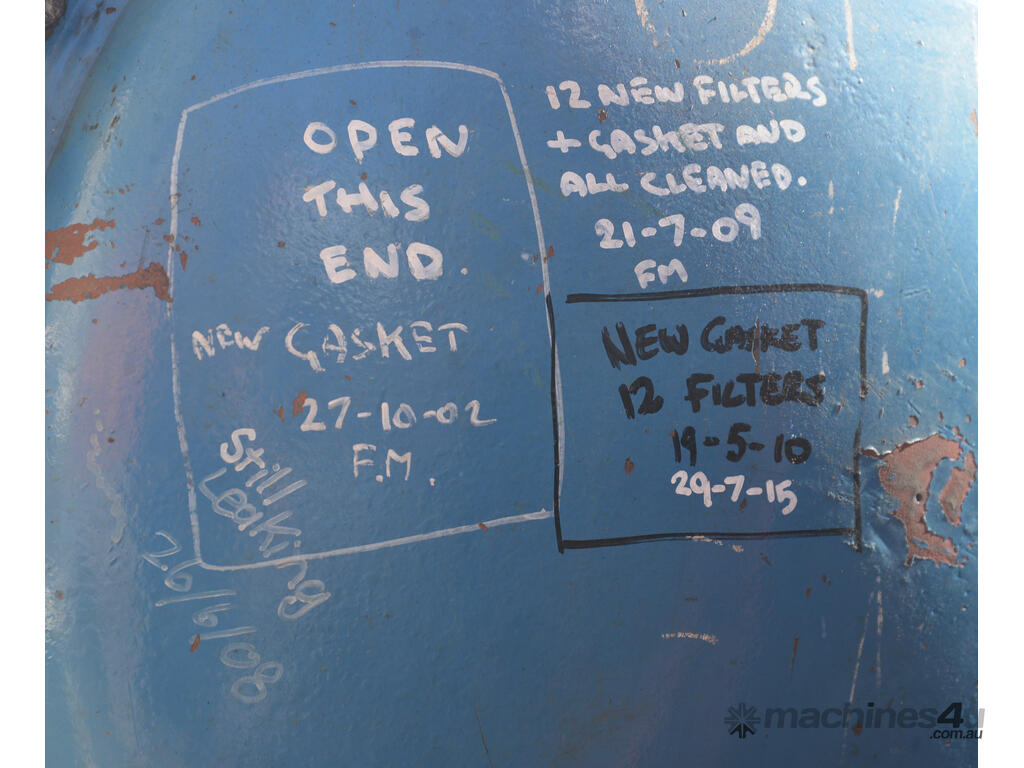 OPEN
THIS
END.
NEW GASKET
27-10-02
F.M.
Still
Leaking
26/6/08
12 NEW FILTERS
+ GASKET AND
ALL CLEANED.
21-7-09
FM
NEW GASKET
12 FILTERS
19-5-10
29-7-15
machines4u
.com.au